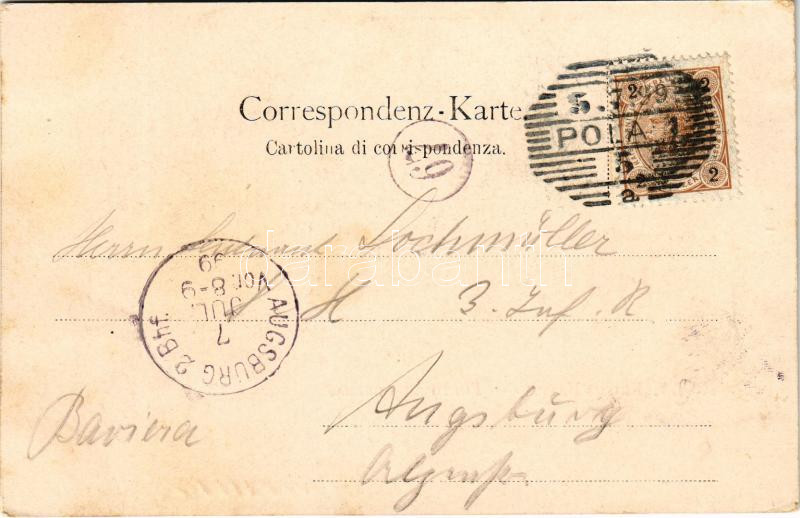 Correspondenz-Karte.
Cartolina di corrispondenza.
5.7.99
POLA 1
5
a
2
2
2
29
Herrn Leutnant Lochmüller
K H 3. Inf. R
AUGSBURG 2 Bhf.
7
JUL.
Vor. 8-9
99
Baviera
Augsburg
darabanth